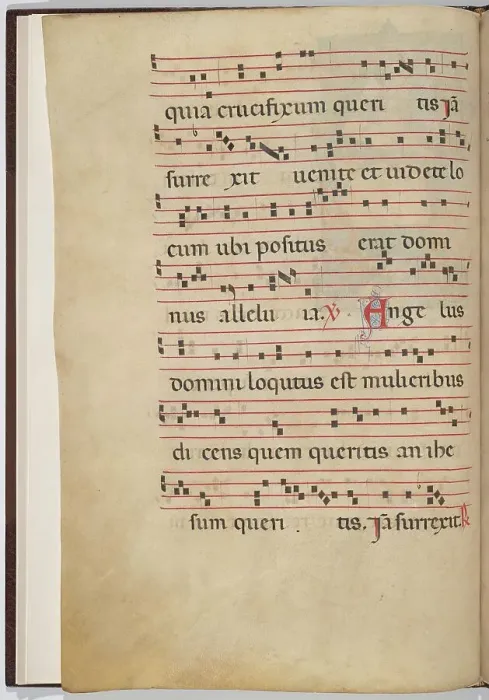 quia crucifixum queri tis Jā
surre xit uenite et uidete lo
cum ubi positus erat domi
nus allelu ia. ℣ Ange lus
domini loqutus est mulieribus
di cens quem queritis an ihe
sum queri . tis. Jā surrexit. ℟